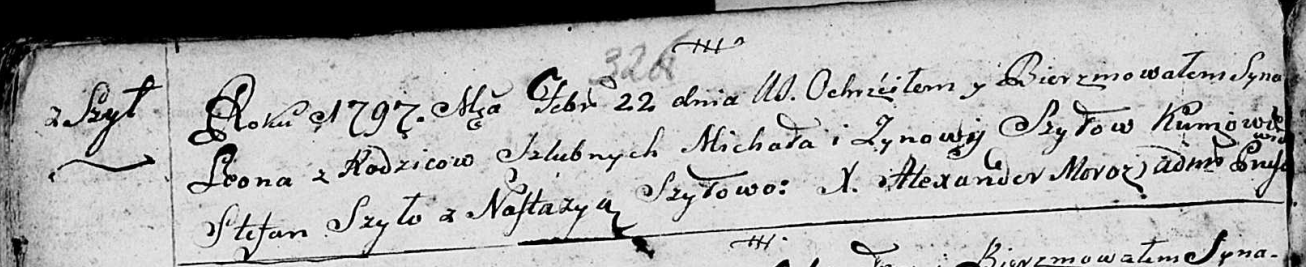 326
z Szył
Roku 1797. Mca Febr 22 dnia W. Ochrzciłem y Bierzmowałem Syna
Leona z Rodzicow Szlubnych Michała i Zynowij Szyłow Kumowie
Stefan Szyło z Nastazyą Szyłowo: X. Alexander Moroz adm:
Bierzmowałem Syna-